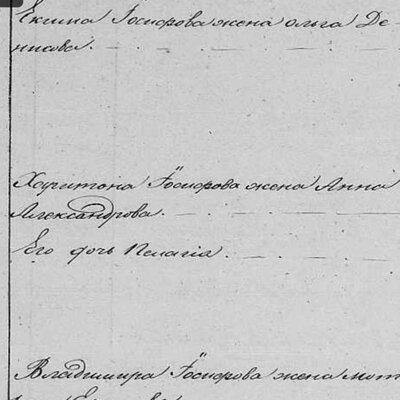 Екима Їосифова жена ольга Де-
нисова.
Харитона Їосифова жена Анна
Александрова.
Его дочь Пелагія.
Владимира Їосифова жена мот